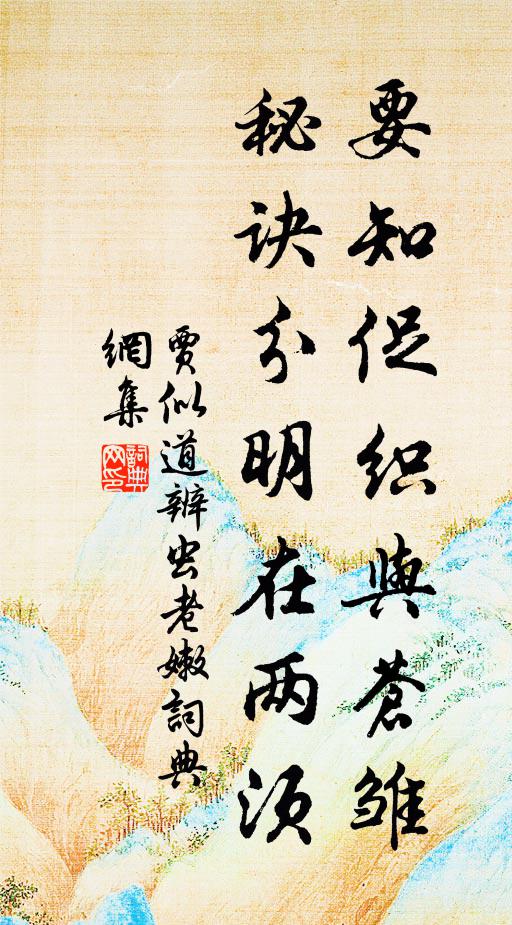 要知促织與蒼雏
秘诀分明在两须
贾似道辨虫老嫩詞典
網集
詞典
网印